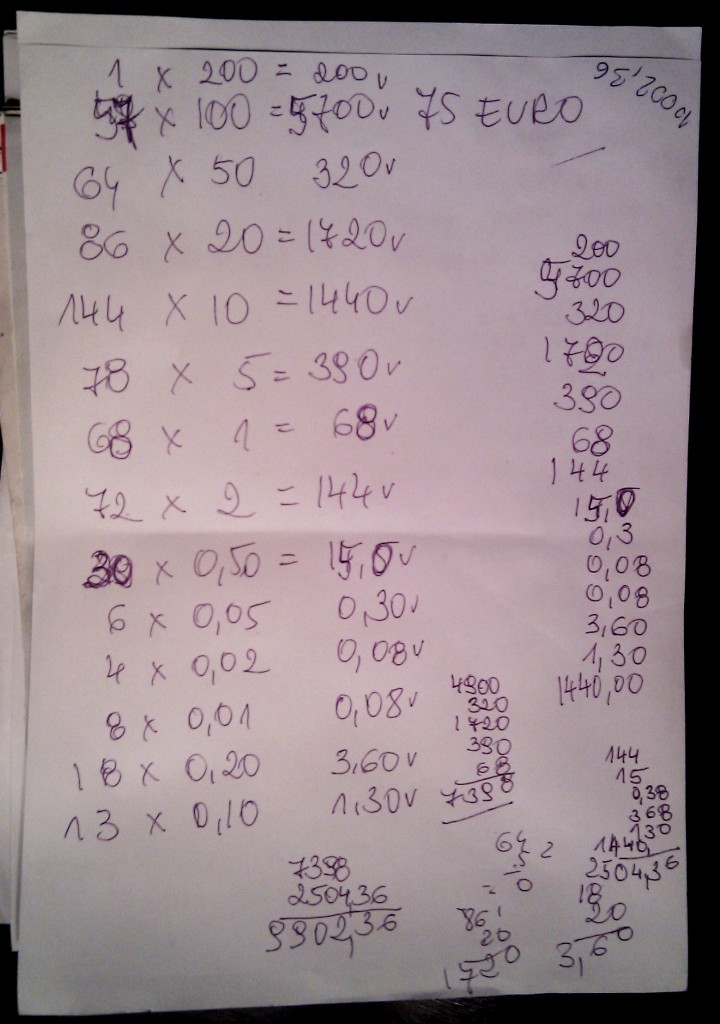 1 x 200 = 200 v
57 x 100 = 5700 v 75 EURO
64 x 50 320 v
86 x 20 = 1720 v
144 x 10 = 1440 v
78 x 5 = 390 v
68 x 1 = 68 v
72 x 2 = 144 v
30 x 0,50 = 15,0 v
6 x 0,05 0,30 v
4 x 0,02 0,08 v
8 x 0,01 0,08 v
18 x 0,20 3,60 v
13 x 0,10 1,30 v
200
5700
320
1720
390
68
144
15,0
0,3
0,08
0,08
3,60
1,30
1440,00
4900
320
1720
390
68
7398
144
15
0,38
368
130
1440,
2504,36
7398
2504,36
9902,36
64 2
5
= 0
86 1
20
1720
18
20
3,60